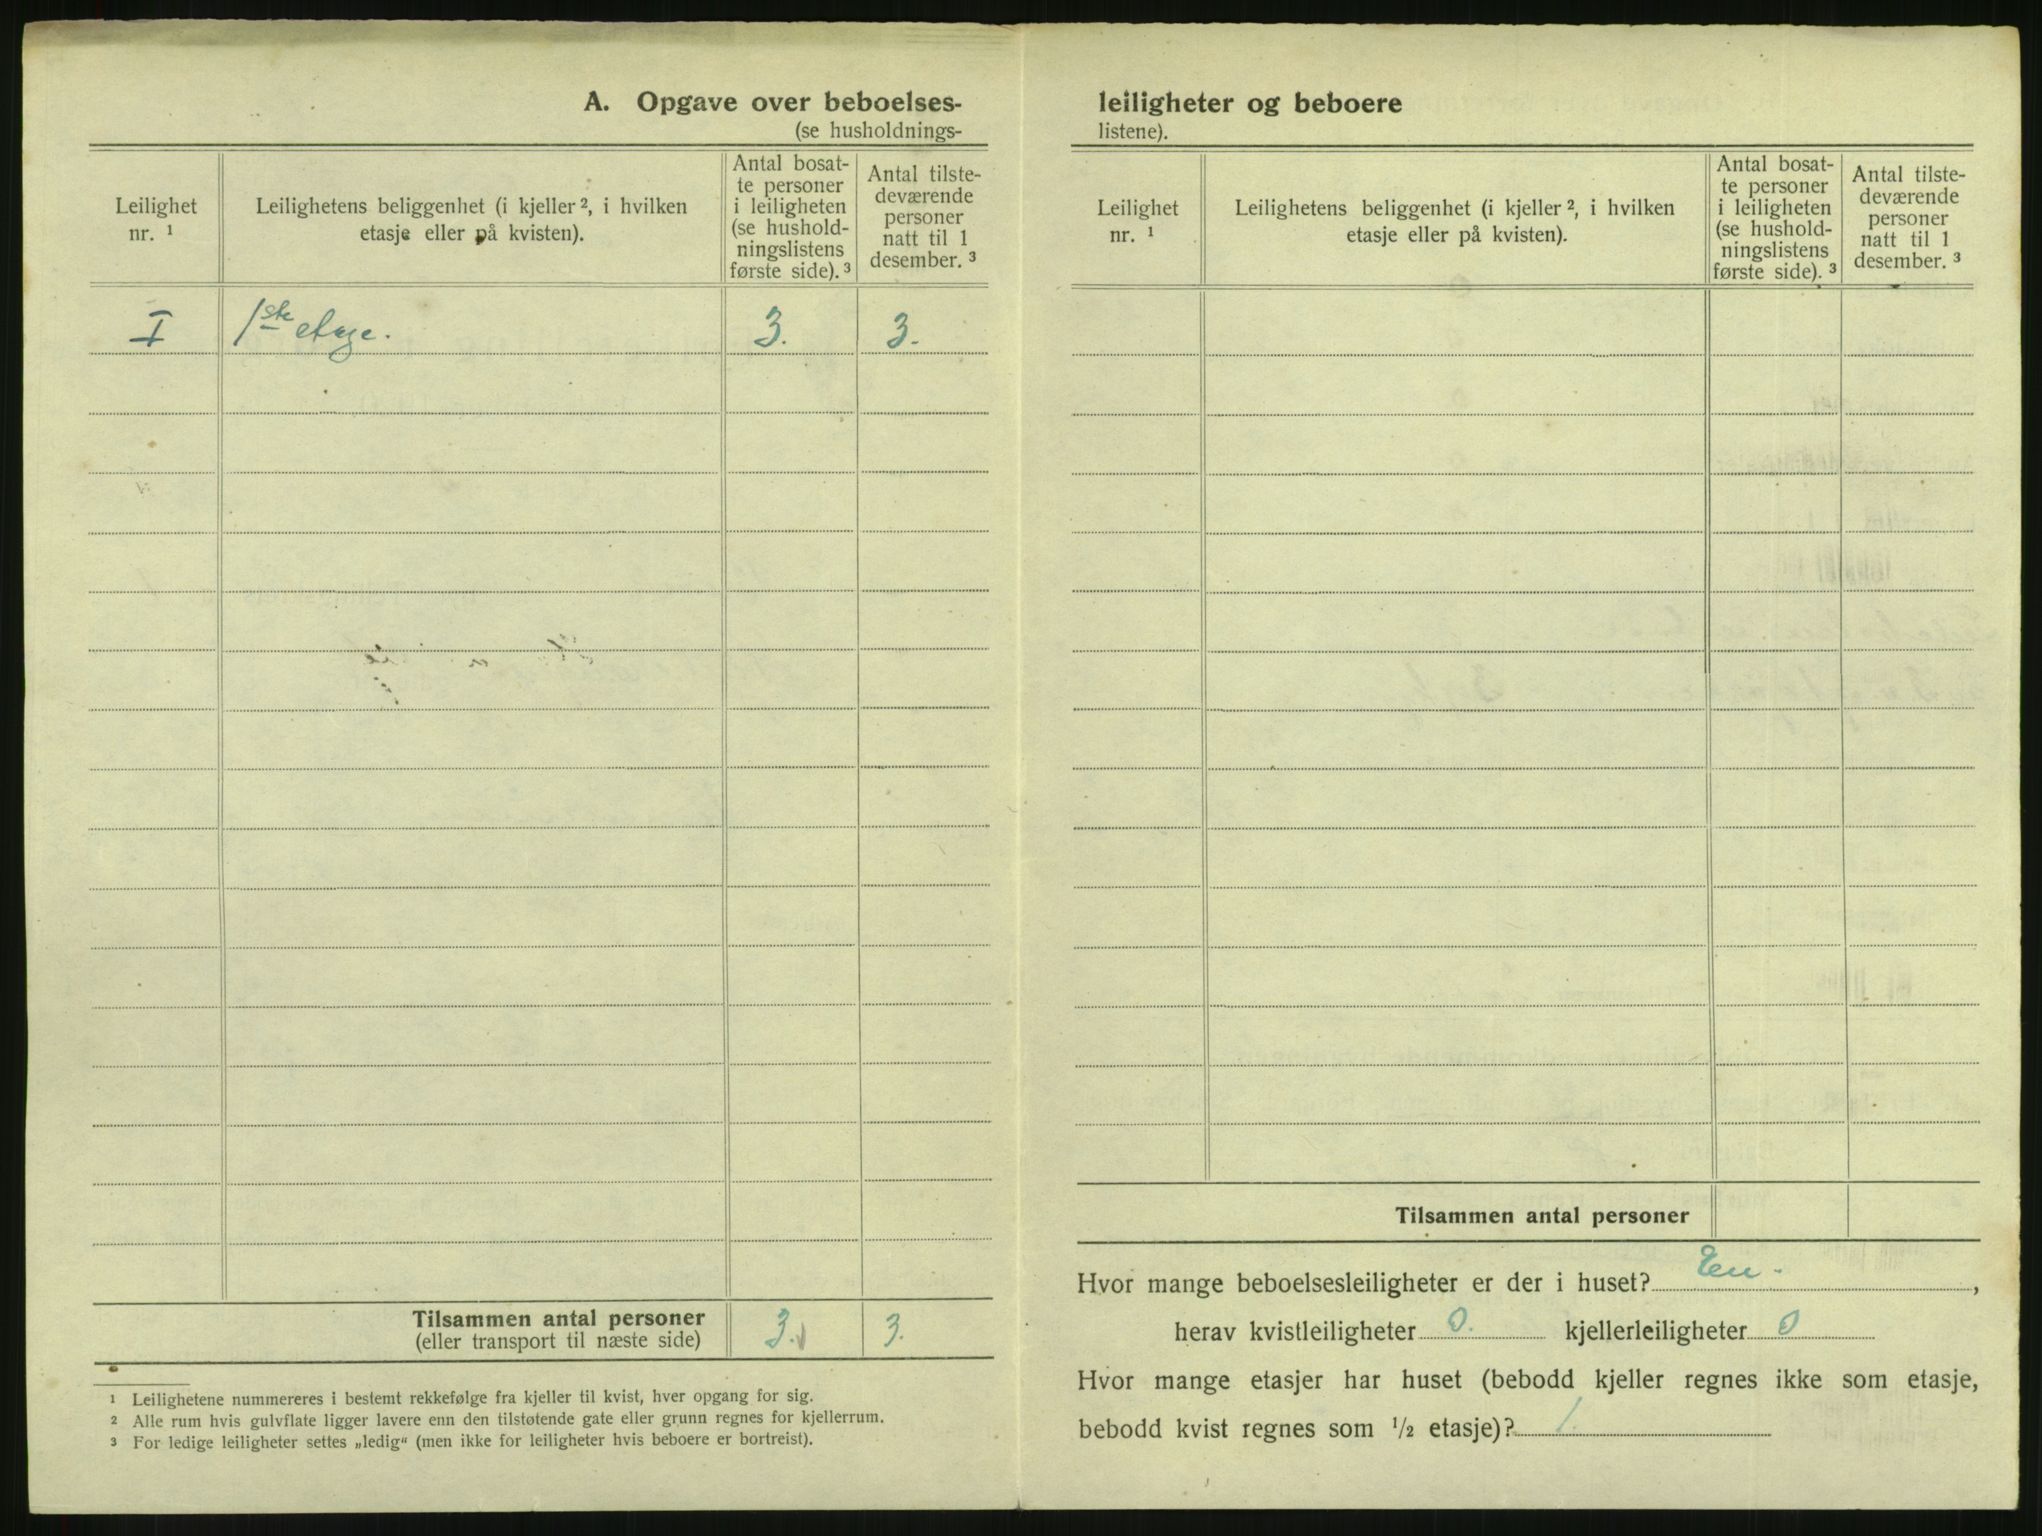 A. Opgave over beboelses-
(se husholdnings-
Leilighet
nr. ¹
Leilighetens beliggenhet (i kjeller ², i hvilken
etasje eller på kvisten).
Antal bosat-
te personer
i leiligheten
(se hushold-
ningslistens
første side). ³
Antal tilste-
deværende
personer
natt til 1
desember. ³
I 1ste etage. 3. 3.
Tilsammen antal personer 3. 3.
(eller transport til næste side)
¹ Leilighetene nummereres i bestemt rekkefølge fra kjeller til kvist, hver opgang for sig.
² Alle rum hvis gulvflate ligger lavere enn den tilstøtende gate eller grunn regnes for kjellerrum.
³ For ledige leiligheter settes „ledig“ (men ikke for leiligheter hvis beboere er bortreist).
leiligheter og beboere
listene).
Leilighet
nr. ¹
Leilighetens beliggenhet (i kjeller ², i hvilken
etasje eller på kvisten).
Antal bosat-
te personer
i leiligheten
(se hushold-
ningslistens
første side). ³
Antal tilste-
deværende
personer
natt til 1
desember. ³
Tilsammen antal personer
Hvor mange beboelsesleiligheter er der i huset? En.,
herav kvistleiligheter 0. kjellerleiligheter 0
Hvor mange etasjer har huset (bebodd kjeller regnes ikke som etasje,
bebodd kvist regnes som ½ etasje)? 1.